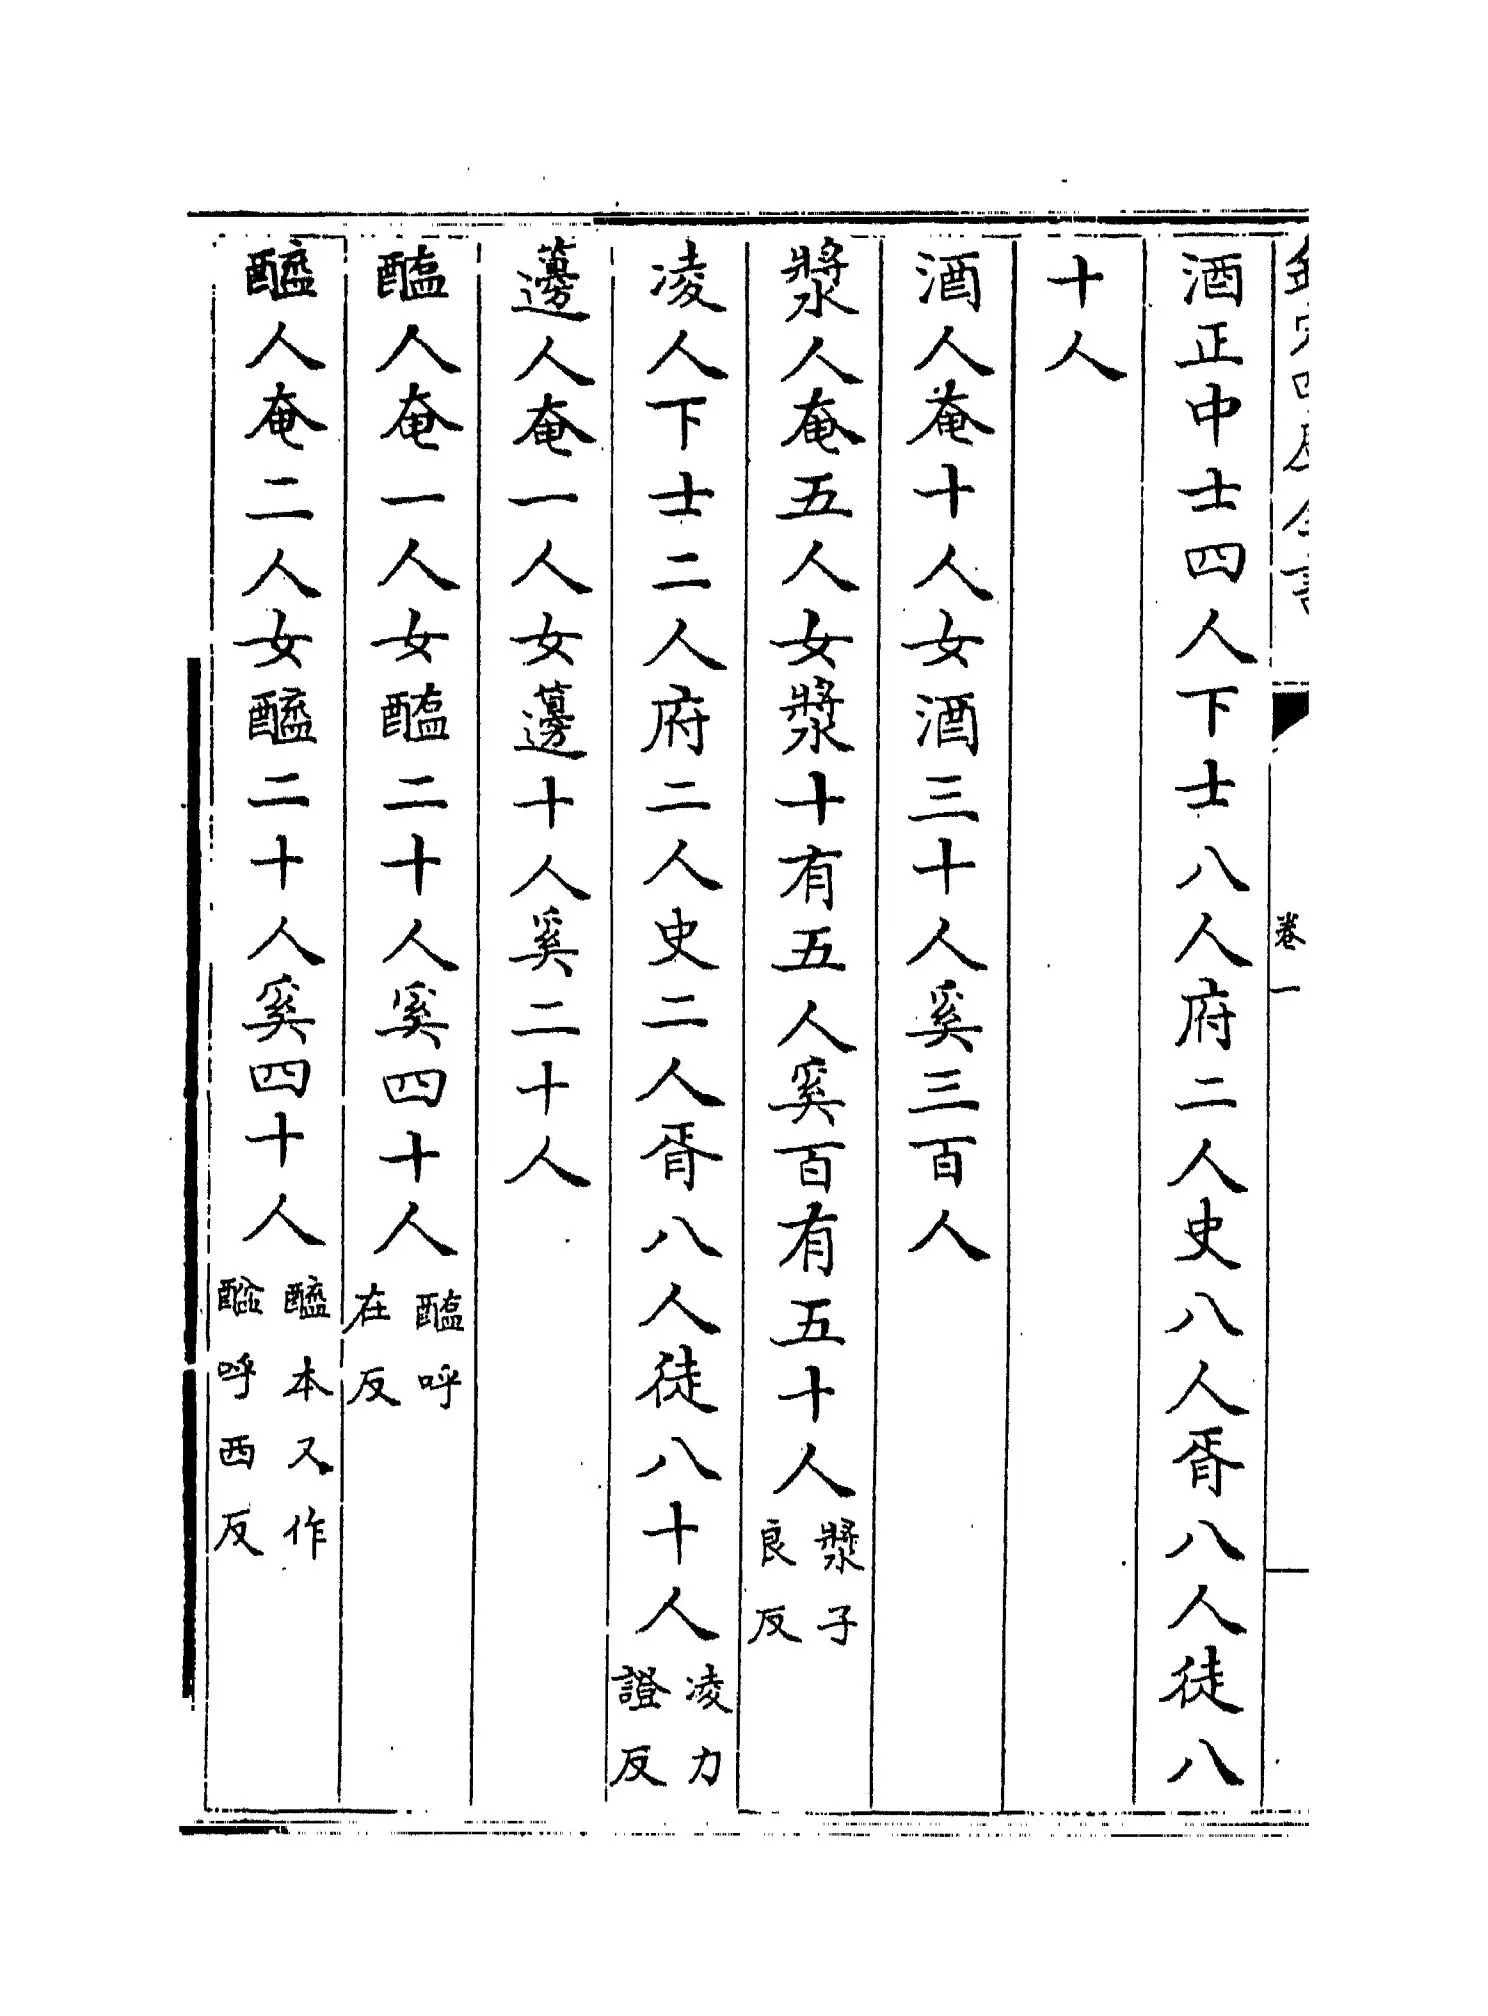 欽定四庫全書 卷一
酒正中士四人下士八人府二人史八人胥八人徒八
十人
酒人菴十人女酒三十人奚三百人
漿人奄五人女漿十有五人奚百有五十人漿子良反
凌人下士二人府二人史二人胥八人徒八十人凌力證反
籩人奄一人女籩十人奚二十人
醢人奄一人女醢二十人奚四十人醢呼在反
醯人奄二人女醯二十人奚四十人醯本又作呼西反